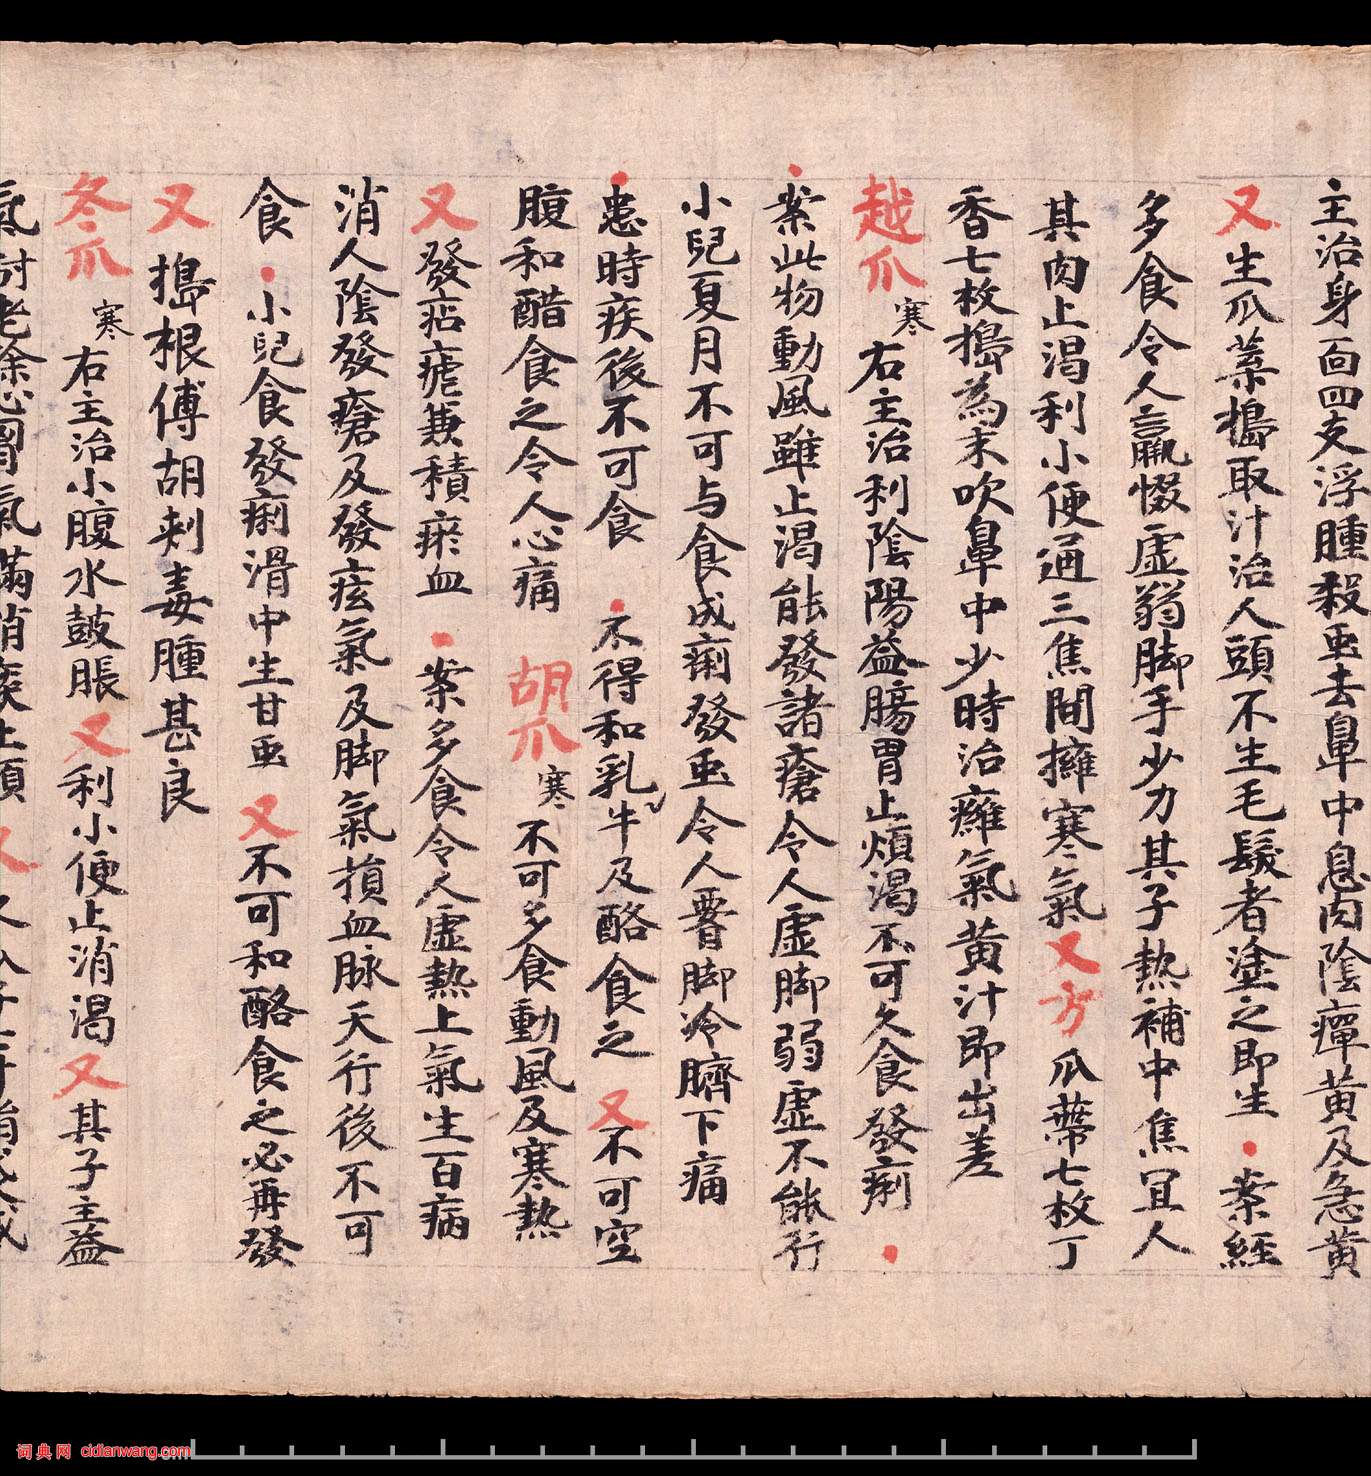 主治身面四支浮腫殺虫去鼻中息肉陰癉黃及急黃
又生瓜葉搗取汁治人頭不生毛髮者塗之即生・案經
多食令人羸惙虛弱脚手少力其子熱補中焦宜人
其肉止渴利小便通三焦間擁寒氣又方瓜蒂七枚丁
香七枚搗為末吹鼻中少時治癰氣黃汁即出差
越瓜寒右主治利陰陽益腸胃止煩渴不可久食發痢・
案此物動風雖止渴能發諸瘡令人虛脚弱虛不能行
小兒夏月不可与食成痢發虫令人瞀脚冷臍下痛
・患時疾後不可食・不得和乳牛及酪食之又不可空
腹和醋食之令人心痛胡瓜寒不可多食動風及寒熱
又發痁瘧兼積瘀血・案多食令人虛熱上氣生百病
消人陰發瘡及發痃氣及脚氣損血脉天行後不可
食・小兒食發痢滑中生甘虫又不可和酪食之必再發
又搗根傅胡刺毒腫甚良
冬瓜寒右主治小腹水鼓脹又利小便止消渴又其子主益
词典网 cidianwang.com